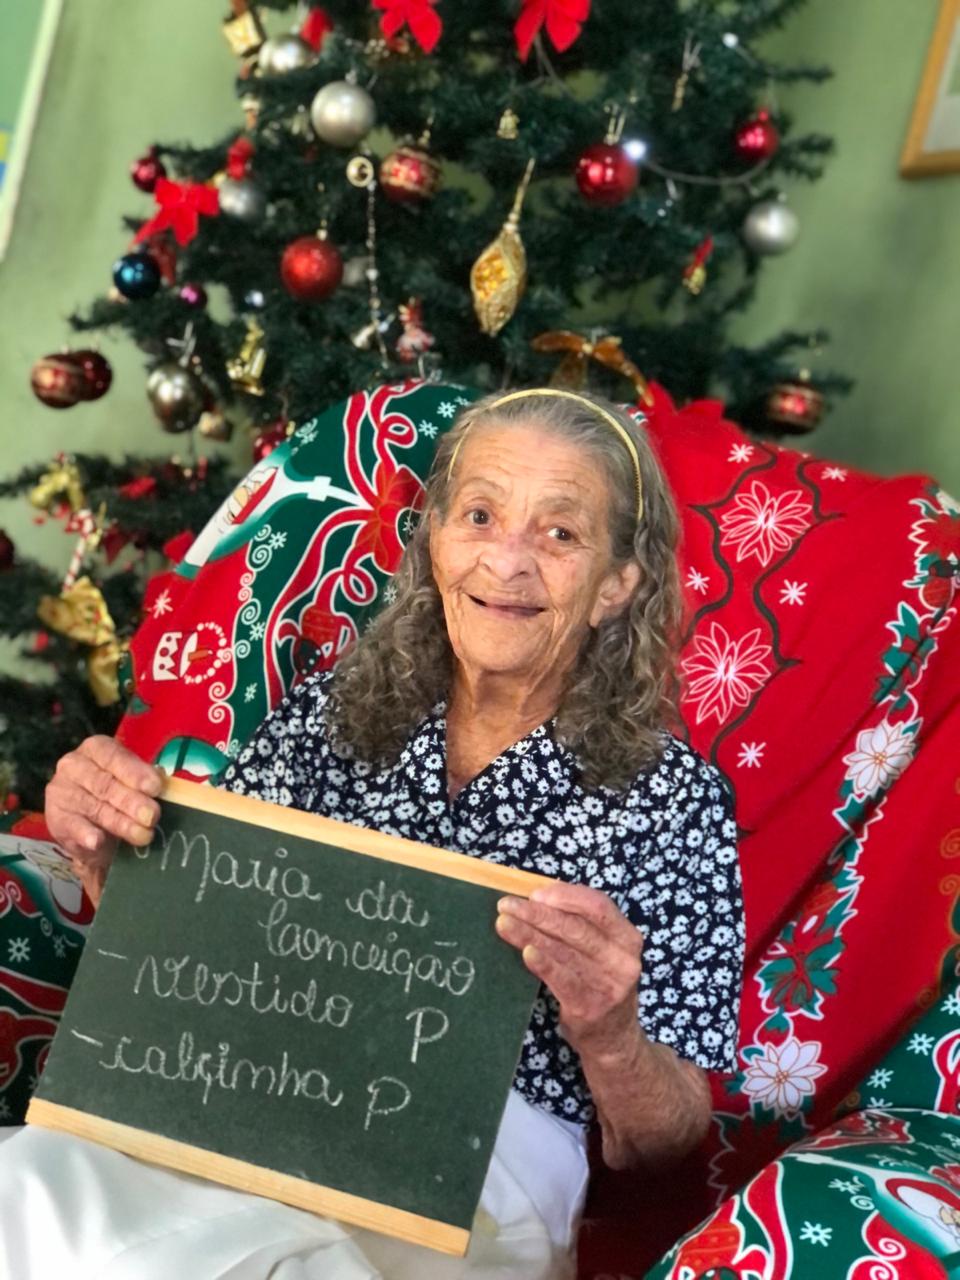 Maria da
Conceição
- Vestido P
- calçinha P